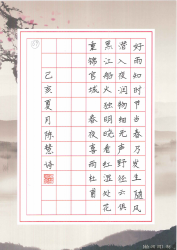 好雨知时节当春乃发生随风
潜入夜润物细无声野径云俱
黑江船火独明晓看红湿处花
重锦官城 春夜喜雨杜甫
己亥夏月陈慧诗